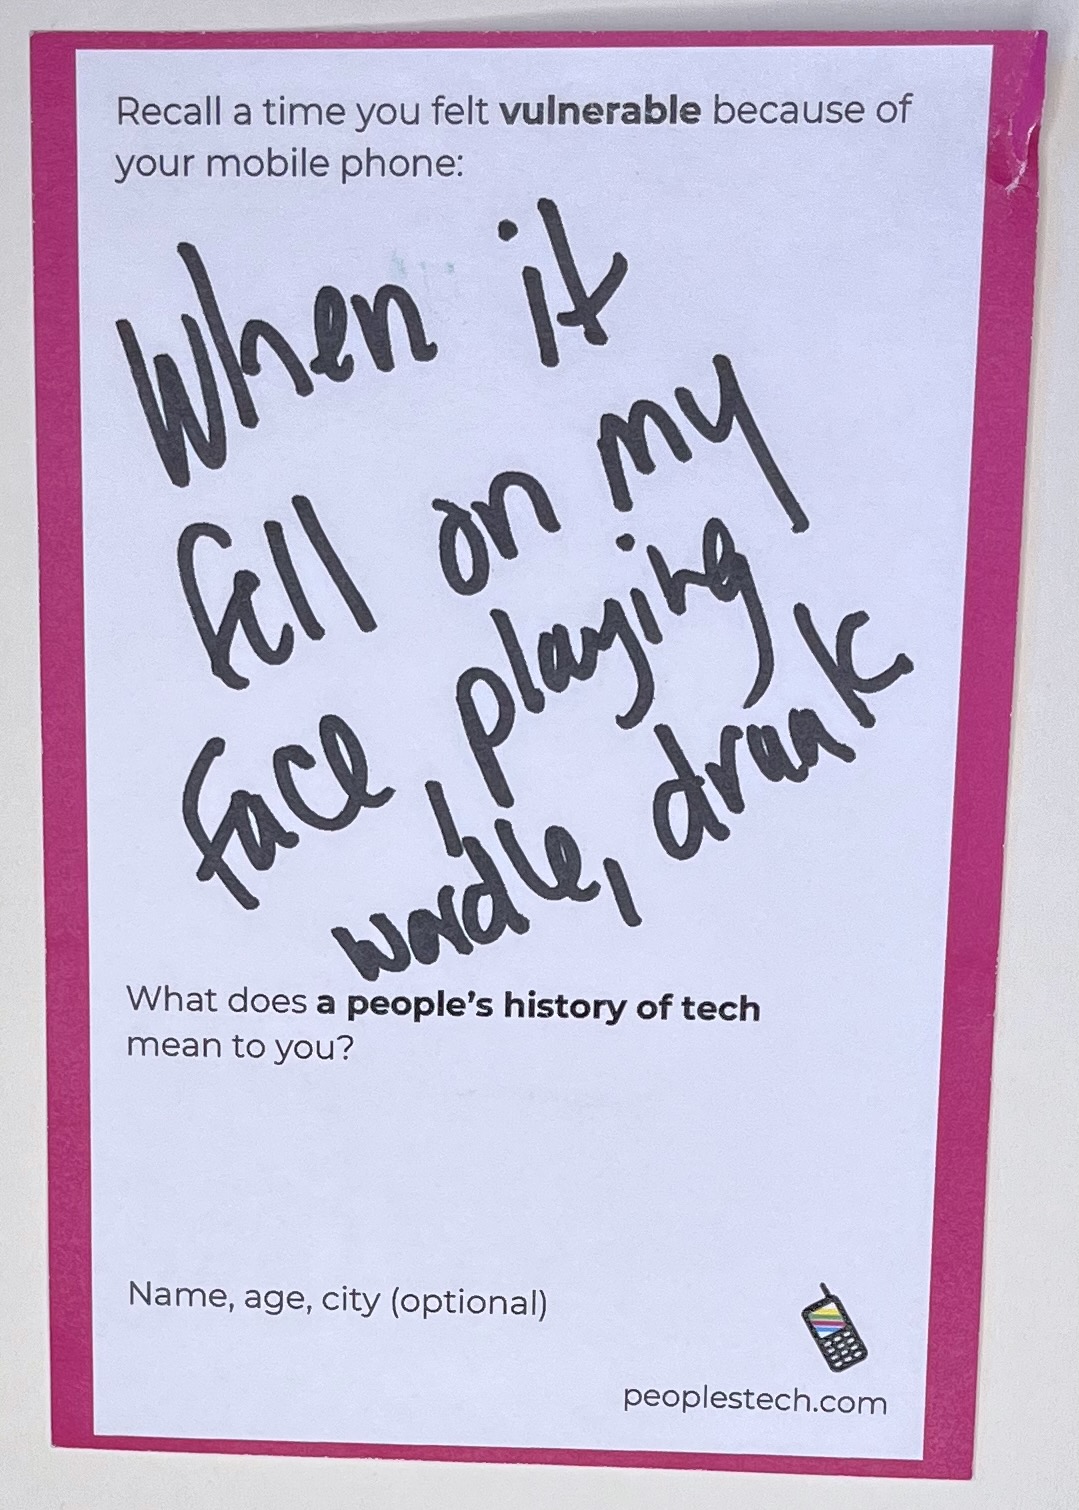 Recall a time you felt vulnerable because of
your mobile phone:
When it
fell on my
face, playing
wordle, drunk
What does a people's history of tech
mean to you?
Name, age, city (optional)
peoplestech.com